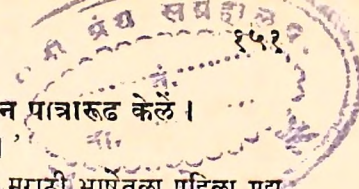 ग्रंथ संग्रहाल
१५१
न पात्रारूढ केलें ।
मराठी भाषेतला पहिला गद्य